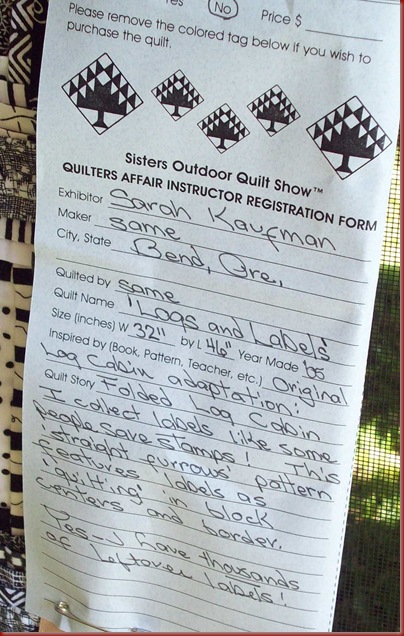 Yes No Price $
Please remove the colored tag below if you wish to
purchase the quilt.
Sisters Outdoor Quilt Show™
QUILTERS AFFAIR INSTRUCTOR REGISTRATION FORM
Exhibitor Sarah Kaufman
Maker same
City, State Bend, Ore.
Quilted by same
Quilt Name "Logs and Labels"
Size (inches) W 32" by L 46" Year Made '05
Inspired by (Book, Pattern, Teacher, etc.) Original
Log Cabin adaptation:
Quilt Story Folded Log Cabin
I collect labels like some
people save stamps! This
'straight furrows' pattern
features labels as
'quilting' in block
centers and border.
Yes - I have thousands
of leftover labels!